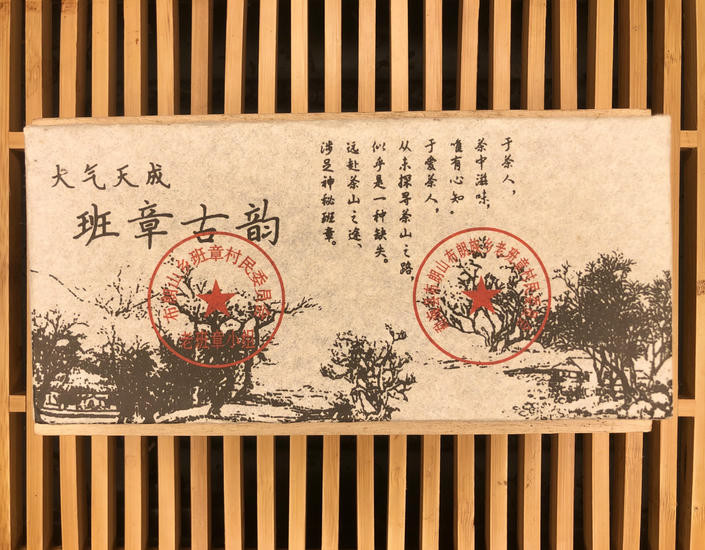 大气天成
班章古韵
于茶人，
茶中滋味，
唯有心知。
于爱茶人，
从未探寻茶山之路，
似乎是一种缺失。
远赴茶山之途，
涉足神秘班章。
布朗山乡班章村民委员会
老班章小组
布朗山布朗族乡老班章村民委员会